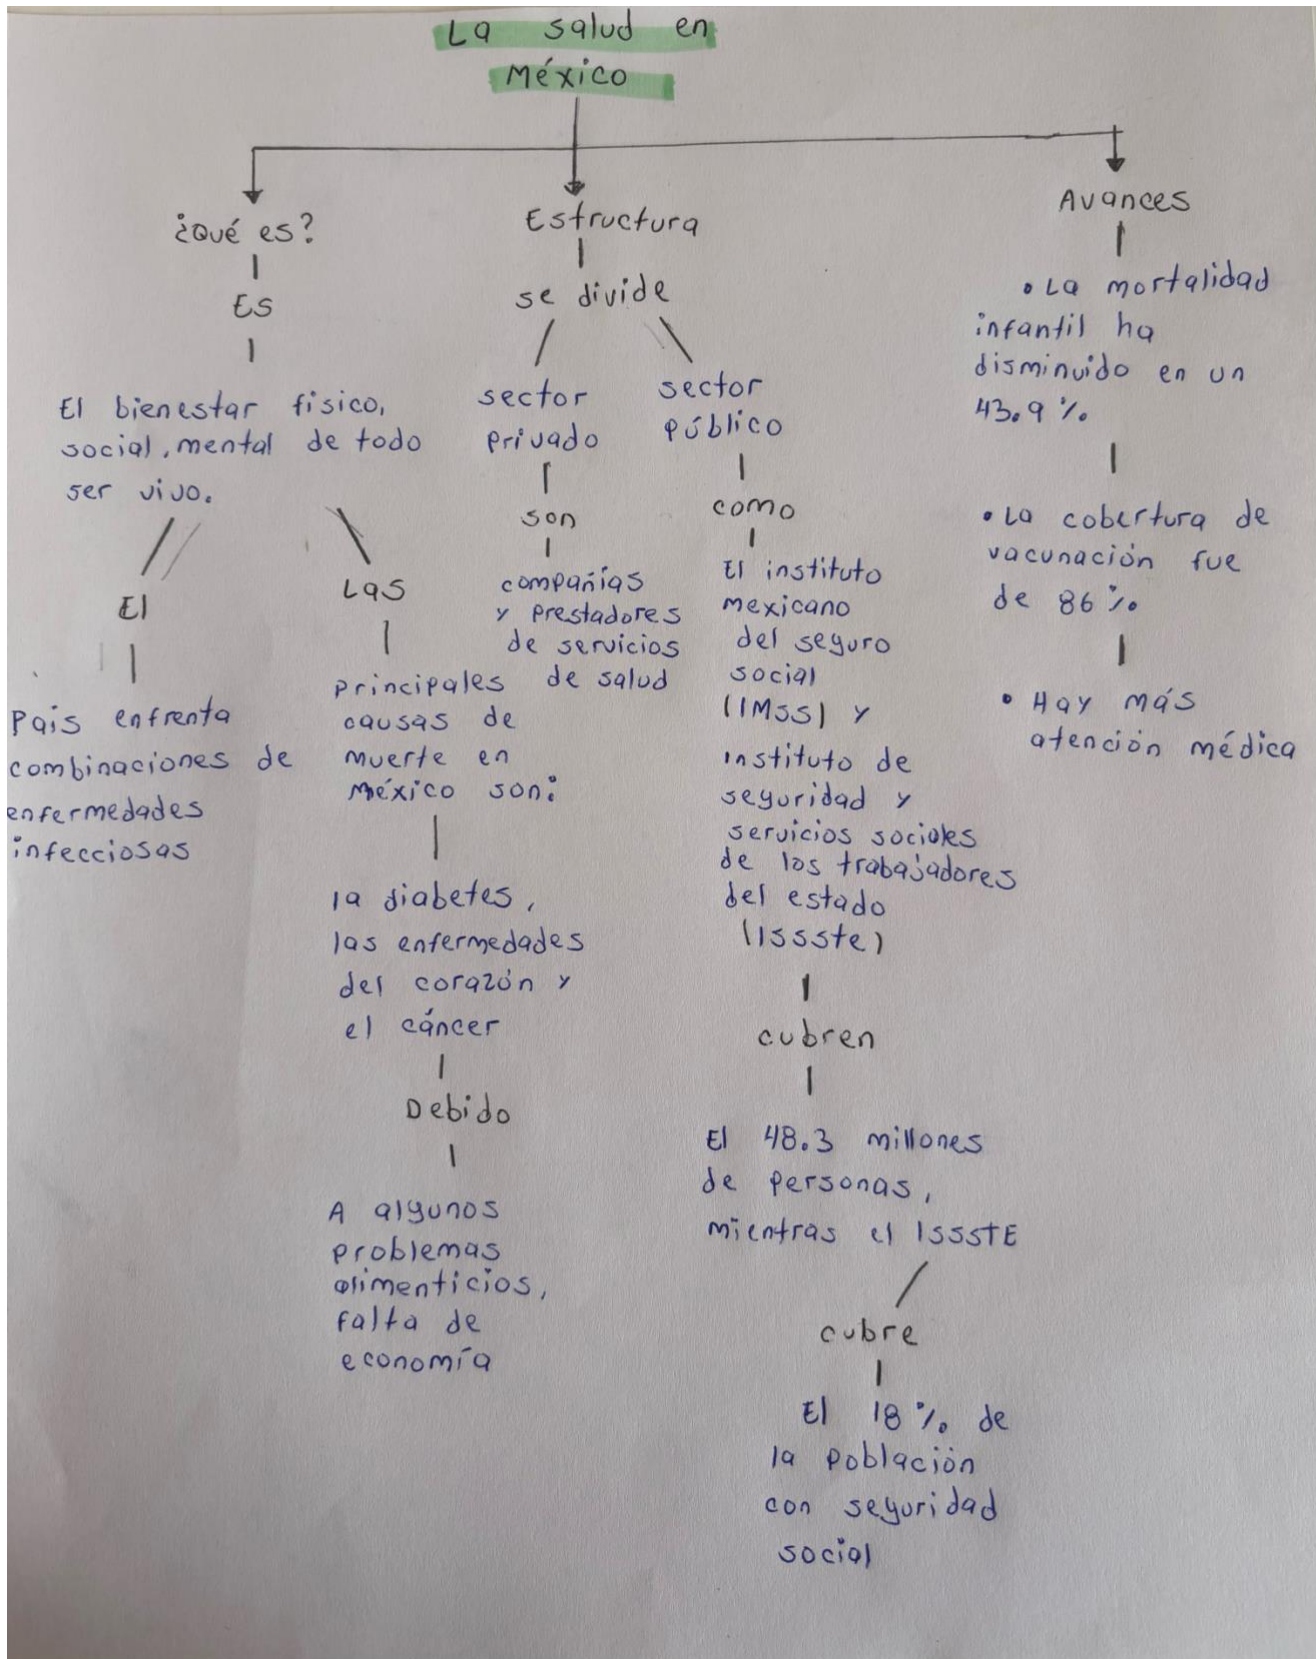 La salud en
México
¿Qué es?
Es
El bienestar físico,
social, mental de todo
ser vivo.
El
País enfrenta
combinaciones de
enfermedades
infecciosas
Las
principales
causas de
muerte en
México son:
la diabetes,
las enfermedades
del corazón y
el cáncer
Debido
A algunos
problemas
alimenticios,
falta de
economía
Estructura
se divide
sector
privado
son
compañías
y prestadores
de servicios
de salud
sector
público
como
El instituto
mexicano
del seguro
social
(IMSS) y
instituto de
seguridad y
servicios sociales
de los trabajadores
del estado
(Issste)
cubren
El 48.3 millones
de personas,
mientras el ISSSTE
cubre
El 18% de
la población
con seguridad
social
Avances
• La mortalidad
infantil ha
disminuido en un
43.9%
• La cobertura de
vacunación fue
de 86%
• Hay más
atención médica